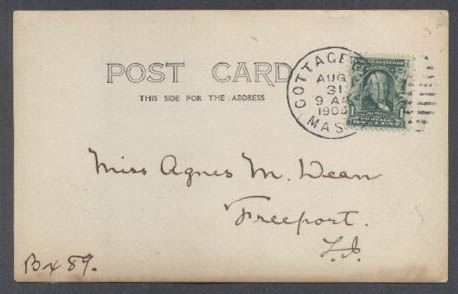 POST CARD
THIS SIDE FOR THE ADDRESS
COTTAGE
AUG
31
9 AM
1905
MASS
Miss Agnes M. Dean
Freeport.
L.I.
Bx 89.